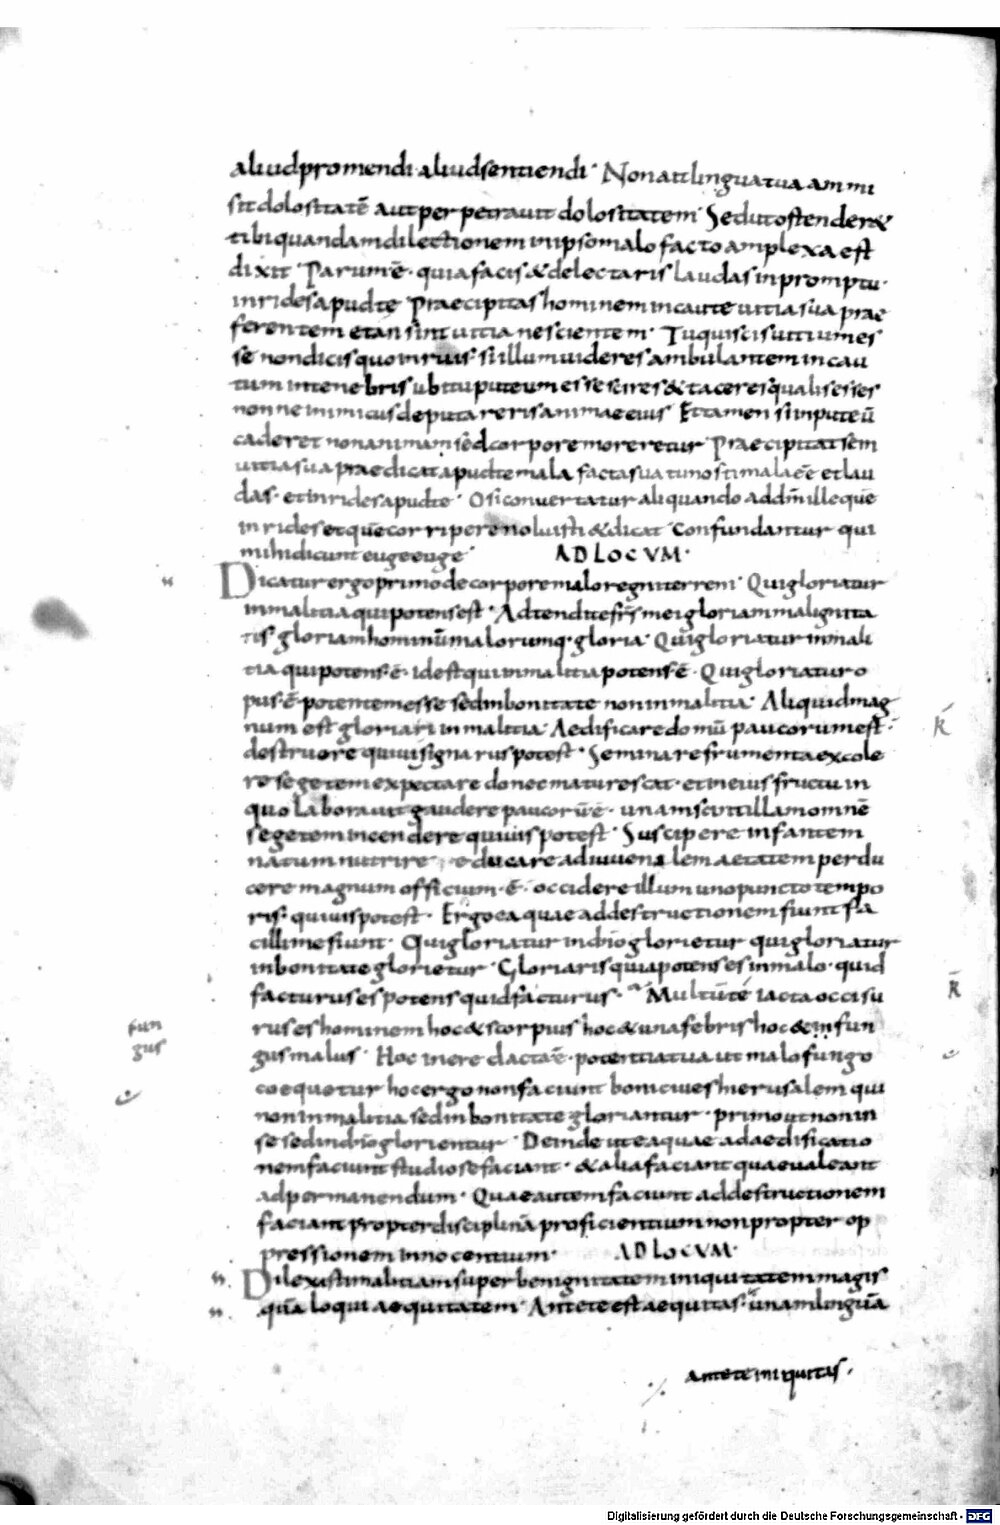 aliud promendi aliud sentiendi · Non a it lingua tua ammi
sit dolositatē aut perpetrauit dolositatem · Sed ut ostender&
tibi quandam dilectionem in ipso malo facto amplexa est
dixit · Parum ē · quia facis & delectaris laudas in promptu ·
inrides apud te · Praecipitas hominem incaute uitia sua prae
ferentem et an sint uitia nescientem · Tu qui scis uitium es
se non dicis quo inruis · si illum uideres ambulantem incau
tum in tenebris ubi tu puteum esse scires & taceres qualis esses
nonne inimicus deputareris animae eius · Et tamen si in puteū
caderet non anima sed corpore moreretur · Praecipitat sem
uitia sua praedicat apud te mala facta sua tu nosti mala eē et lau
das · et inrides apud te · O si convertatur aliquando ad dm̄ ille quē
inrides et quē corripere noluisti & dicat · Confundantur qui
mihi dicunt euge euge · AD LOCVM ·
Dicatur ergo primo de corpore malo regni terreni · Qui gloriatur
in malitia qui potens est · Adtendite frs̄ mei gloriam malignita
tis gloriam hominū malorum q· gloria · Qui gloriatur in mali
tia qui potens · ē · id est qui in malitia potens · ē · Qui gloriatur o
pus · ē · potentem esse sed in bonitate non in malitia · Aliquid mag
num est gloriari in malitia · Aedificare domū paucorum est ·
destruere quiuis ignarus potest · Seminare frumenta excole
re segetem expectare donec maturescat · et in eius fructu in
quo laborauit gaudere paucorū ē · unam scintillam omnē
segetem incendere quiuis potest · Suscipere infantem
natum nutrire educare ad iuuenalem aetatem perdu
cere magnum officium · ē · occidere illum uno puncto tempo
ris · quiuis potest · Ergo ea quae ad destructionem fiunt fa
cillime fiunt · Qui gloriatur in dn̄o glorietur qui gloriatur
in bonitate glorietur · Gloriaris quia potens es in malo · quid
facturus es potens quid facturus · Multū te iacta occisu
rus es hominem hoc & scorpius hoc & una febris hoc & in fun
gus malus · Hoc ine redacta ē · potentia tua ut malo fungo
coequetur hoc ergo non faciunt boni ciues hierusalem qui
non in malitia sed in bonitate gloriantur · primo ut non in
se sed in dn̄o glorientur · Deinde ut ea quae ad aedificatio
nem faciunt studiose faciant · & alia faciant quae ualeant
ad permanendum · Quae autem faciunt ad destructionem
faciant propter disciplinā proficientium non propter op
pressionem innocentium · AD LOCVM ·
Dilexisti malitiam super benignitatem iniquitatem magis
quā loqui aequitatem · Ante te est aequitas · unam linguā
fun
gus
ante te iniquitas ·